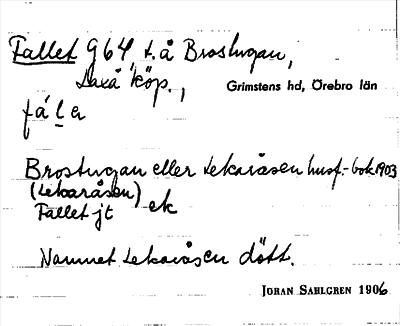 Fallet 964 t. å Brostugan,
Laxå köp.,
Grimstens hd, Örebro län
fá̀ḷa
Brostugan eller Lekaråsen husf.-bok 1903
(Lekaråsen)
Fallet jt ek
Namnet Lekaråsen dött.
JOHAN SAHLGREN 1906